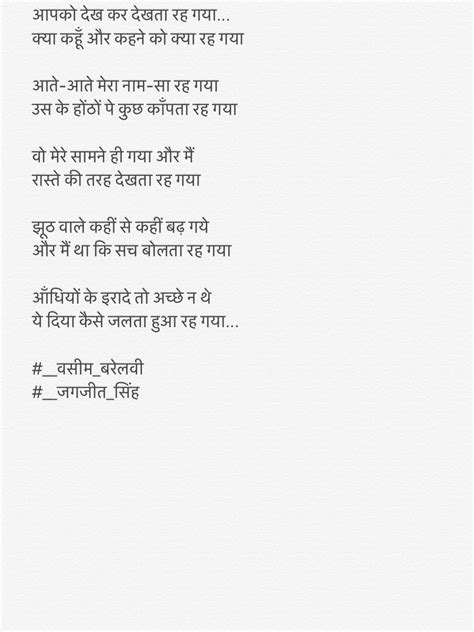 आपको देख कर देखता रह गया...
क्या कहूँ और कहने को क्या रह गया
आते-आते मेरा नाम-सा रह गया
उस के होंठों पे कुछ काँपता रह गया
वो मेरे सामने ही गया और मैं
रास्ते की तरह देखता रह गया
झूठ वाले कहीं से कहीं बढ़ गये
और मैं था कि सच बोलता रह गया
आँधियों के इरादे तो अच्छे न थे
ये दिया कैसे जलता हुआ रह गया...
#__वसीम_बरेलवी
#__जगजीत_सिंह